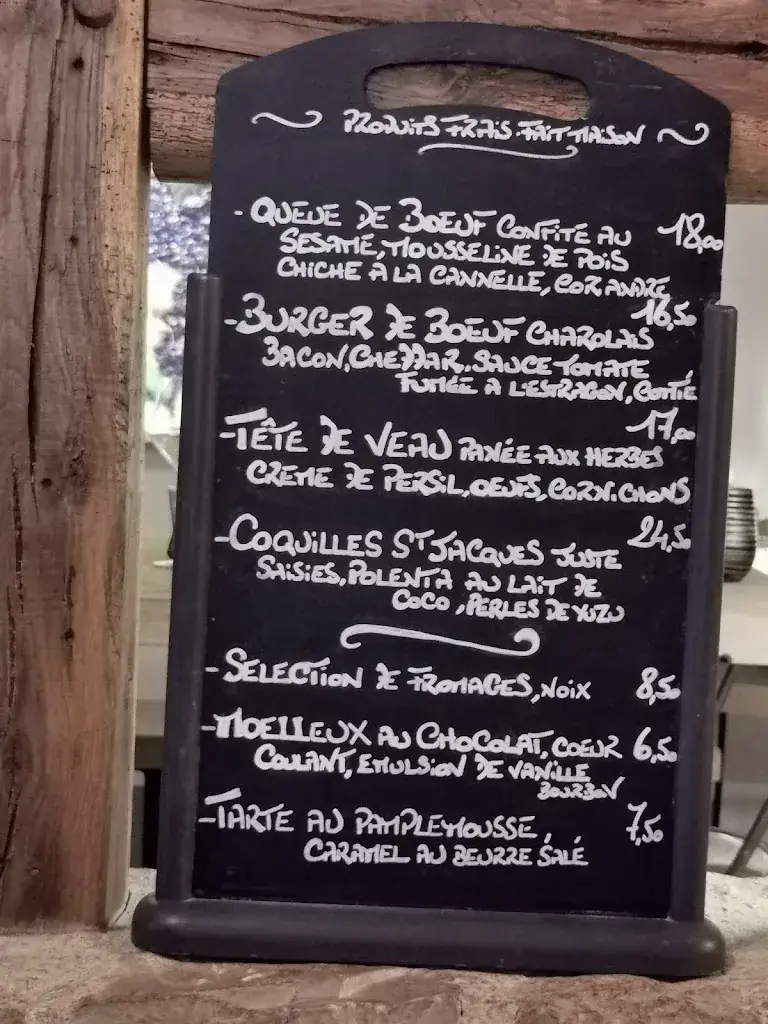 PRODUITS FRAIS. FAIT MAISON
- QUEUE DE BOEUF CONFITE AU 18,00
SESAME, MOUSSELINE DE POIS
CHICHE A LA CANNELLE, CORIANDRE
16,50
- BURGER DE BOEUF CHAROLAIS
BACON, CHEDDAR, SAUCE TOMATE
FUMÉE A L'ESTRAGON, COMTÉ
17,00
- TÊTE DE VEAU PANÉE AUX HERBES
CREME DE PERSIL, OEUFS, CORNICHONS
24,50
- COQUILLES ST JACQUES JUSTE
SAISIES, POLENTA AU LAIT DE
COCO, PERLES DE YUZU
- SELECTION DE FROMAGES, NOIX 8,50
- MOELLEUX AU CHOCOLAT, COEUR 6,50
COULANT, EMULSION DE VANILLE
BOURBON
- TARTE AU PAMPLEMOUSSE, 7,50
CARAMEL AU BEURRE SALÉ